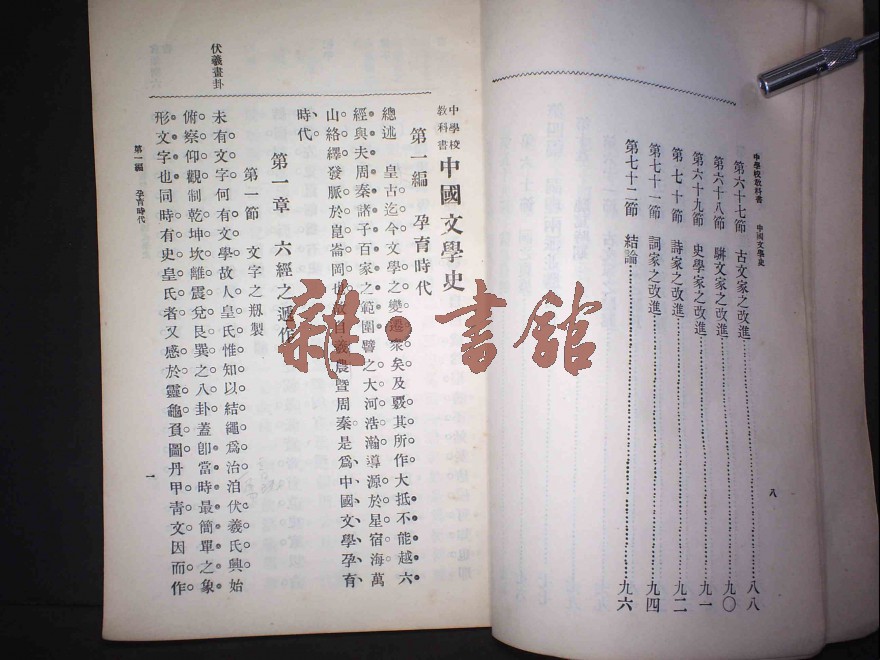 中學校教科書　中國文學史
第六十七節　古文家之改進……八八
第六十八節　駢文家之改進……九〇
第六十九節　史學家之改進……九一
第七十節　詩家之改進……九二
第七十一節　詞家之改進……九四
第七十二節　結論……九六
八
中學校教科書　中國文學史
第一編　孕育時代
總述　皇古迄今文學之變遷衆矣及覈其所作大抵不能越六
經與夫周秦諸子百家之範圍譬之大河浩瀚導源於星宿海萬
山絡繹發脈於崑崙岡也故自羲農暨周秦是爲中國文學孕育
時代。
第一章　六經之遞作
第一節　文字之瓶製
未有文字何有文學故人皇氏惟知以結繩爲治洎伏羲氏興始
俯察仰觀制乾坤坎離震兌艮巽之八卦蓋卽當時最簡單之象
形文字也同時有史皇氏者又感於靈龜負圖丹甲青文因而作
伏羲畫卦
第一編　孕育時代
一
雜·書館